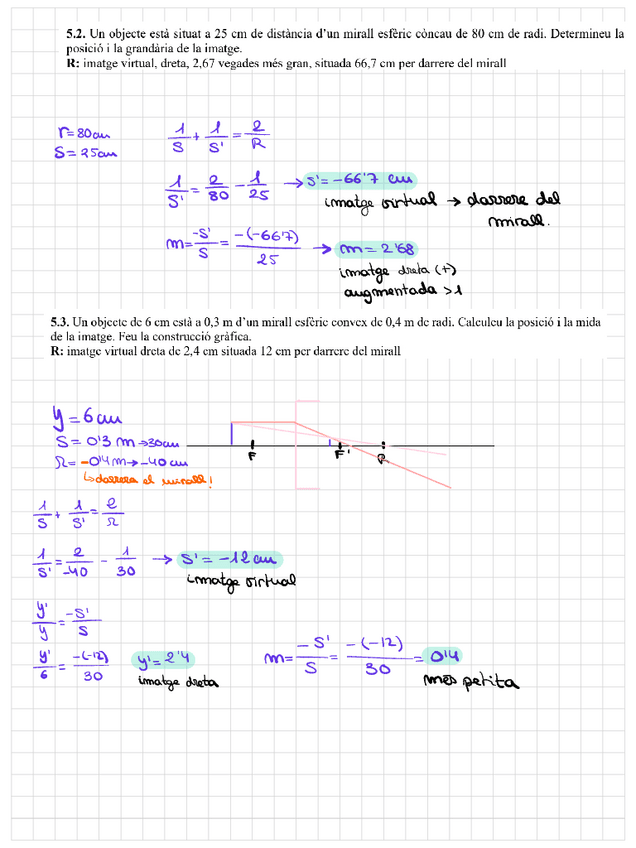 5.2. Un objecte està situat a 25 cm de distància d'un mirall esfèric còncau de 80 cm de radi. Determineu la
posició i la grandària de la imatge.
R: imatge virtual, dreta, 2,67 vegades més gran, situada 66,7 cm per darrere del mirall
r=80cm
S=25cm
1/S + 1/S' = 2/R
1/S' = 2/80 - 1/25 → S'=-66'7 cm
imatge virtual → darrere del
mirall.
m= -S'/S = -(-667)/25 → m= 2'68
imatge dreta (+)
augmentada >1
5.3. Un objecte de 6 cm està a 0,3 m d'un mirall esfèric convex de 0,4 m de radi. Calculeu la posició i la mida
de la imatge. Feu la construcció gràfica.
R: imatge virtual dreta de 2,4 cm situada 12 cm per darrere del mirall
y=6cm
S= 0'3 m→30cm
R= -0'4m→-40 cm
↳darrera el mirall!
F F' R
1/S + 1/S' = 2/R
1/S' = 2/-40 - 1/30 → S'=-12cm
imatge virtual
y'/y = -S'/S
y'/6 = -(-12)/30 y'= 2'4
imatge dreta
m= -S'/S = -(-12)/30 = 0'4
més petita